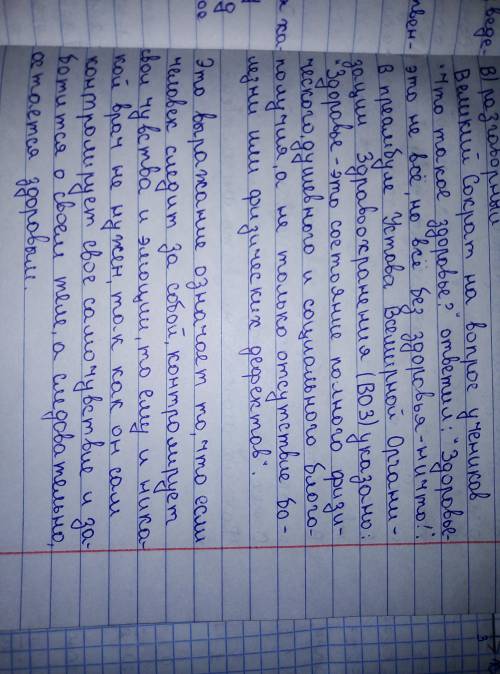 веде-
твен-
Великий Сократ на вопрос учеников
"Что такое здоровье?" ответил: "Здоровье-
это не всё, но всё без здоровья-ничто!".
В преамбуле Устава Всемирной Органи-
зации Здравоохранения (ВОЗ) указано:
"Здоровье-это состояние полного физи-
ческого, душевного и социального благо-
получия, а не только отсутствие бо-
лезни или физических дефектов".
Это выражание означает то, что если
человек следит за собой, контролирует
свои чувства и эмоции, то ему и ника-
кой врач не нужен, так как он сам
контролирует свое самочувствие и за-
ботится о своем теле, а следовательно,
остается здоровым.